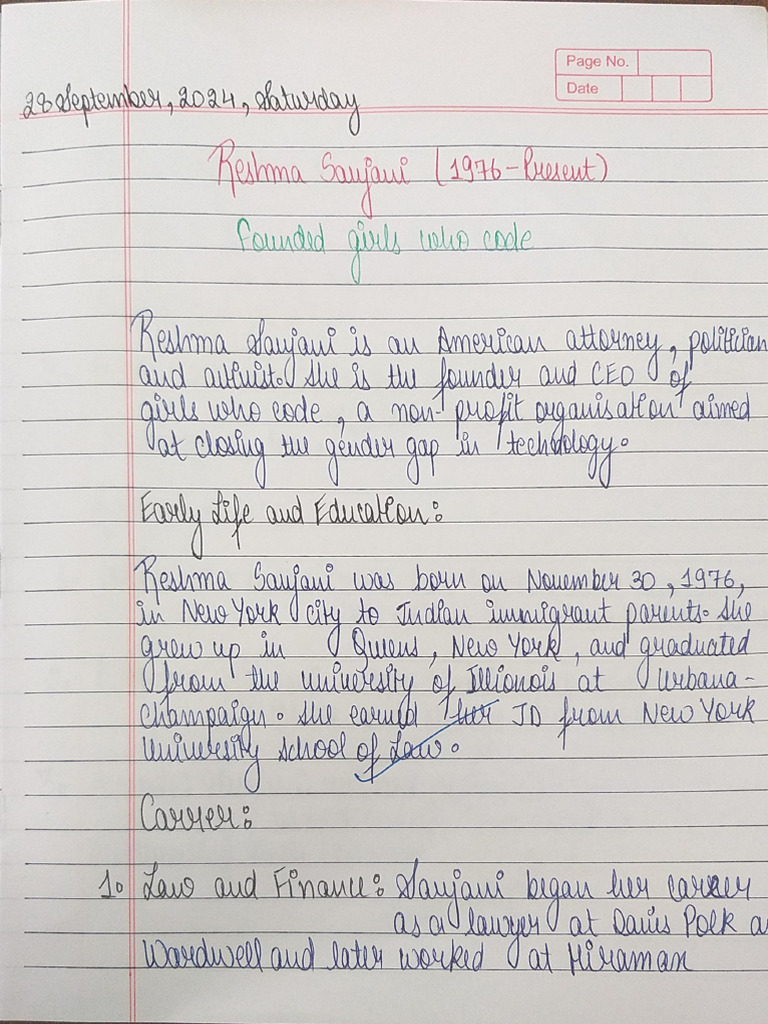 Page No.
Date
28 September, 2024, Saturday
Reshma Saujani (1976-Present)
Founded girls who code
Reshma Saujani is an American attorney, politician
and activist. She is the founder and CEO of
girls who code, a non-profit organisation aimed
at closing the gender gap in technology.
Early Life and Education:
Reshma Saujani was born on November 30, 1976,
in New York city to Indian immigrant parents. She
grew up in Queens, New York, and graduated
from the university of Illionois at Urbana-
Champaign. She earned her JD from New York
University school of Law.
Carrer:
1. Law and Finance: Saujani began her career
as a lawyer at Davis Polk a
Wardwell and later worked at Hiraman